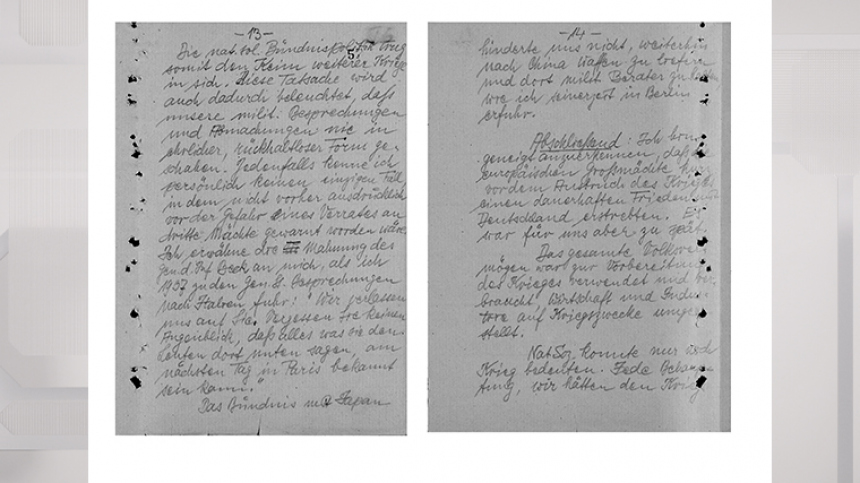 -13-
Die nat. soz. Bündnispolitik trug
somit den Keim weiterer Kriege
in sich. Diese Tatsache wird
auch dadurch beleuchtet, daß
unsere milit. Besprechungen
und Abmachungen nie in
ehrlicher, rückhaltloser Form ge-
schahen. Jedenfalls kenne ich
persönlich keinen einzigen Fall
in dem nicht vorher ausdrücklich
vor der Gefahr eines Verrates an
dritte Mächte gewarnt worden wäre
Ich erwähne die Mahnung des
an mich, als ich
1937 zu den Gen. St. Besprechungen
nach Italien fuhr: "Wir verlassen
uns auf Sie. Vergessen Sie keinen
Augenblick, daß alles was sie den
Leuten dort unten sagen, am
nächsten Tag in Paris bekannt
sein kann."
Das Bündnis mit Japan
-14-
hinderte uns nicht, weiterhin
nach China Waffen zu liefern
und dort milit. Berater zu
wie ich seinerzeit in Berlin
erfuhr.
Abschließend: Ich bin
geneigt anzuerkennen, daß
europäischen Großmächte kurz
vor dem Ausbruch des Krieges
einen dauerhaften Frieden mit
Deutschland erstrebten. Es
war für uns aber zu spät.
Das gesamte Volksver-
mögen war zur Vorbereitung
des Krieges verwendet und ver-
braucht, Wirtschaft und Indus-
trie auf Kriegszwecke umge-
stellt.
Nat. Soz. konnte nur noch
Krieg bedeuten. Jede Behaup-
tung, wir hätten den Krieg